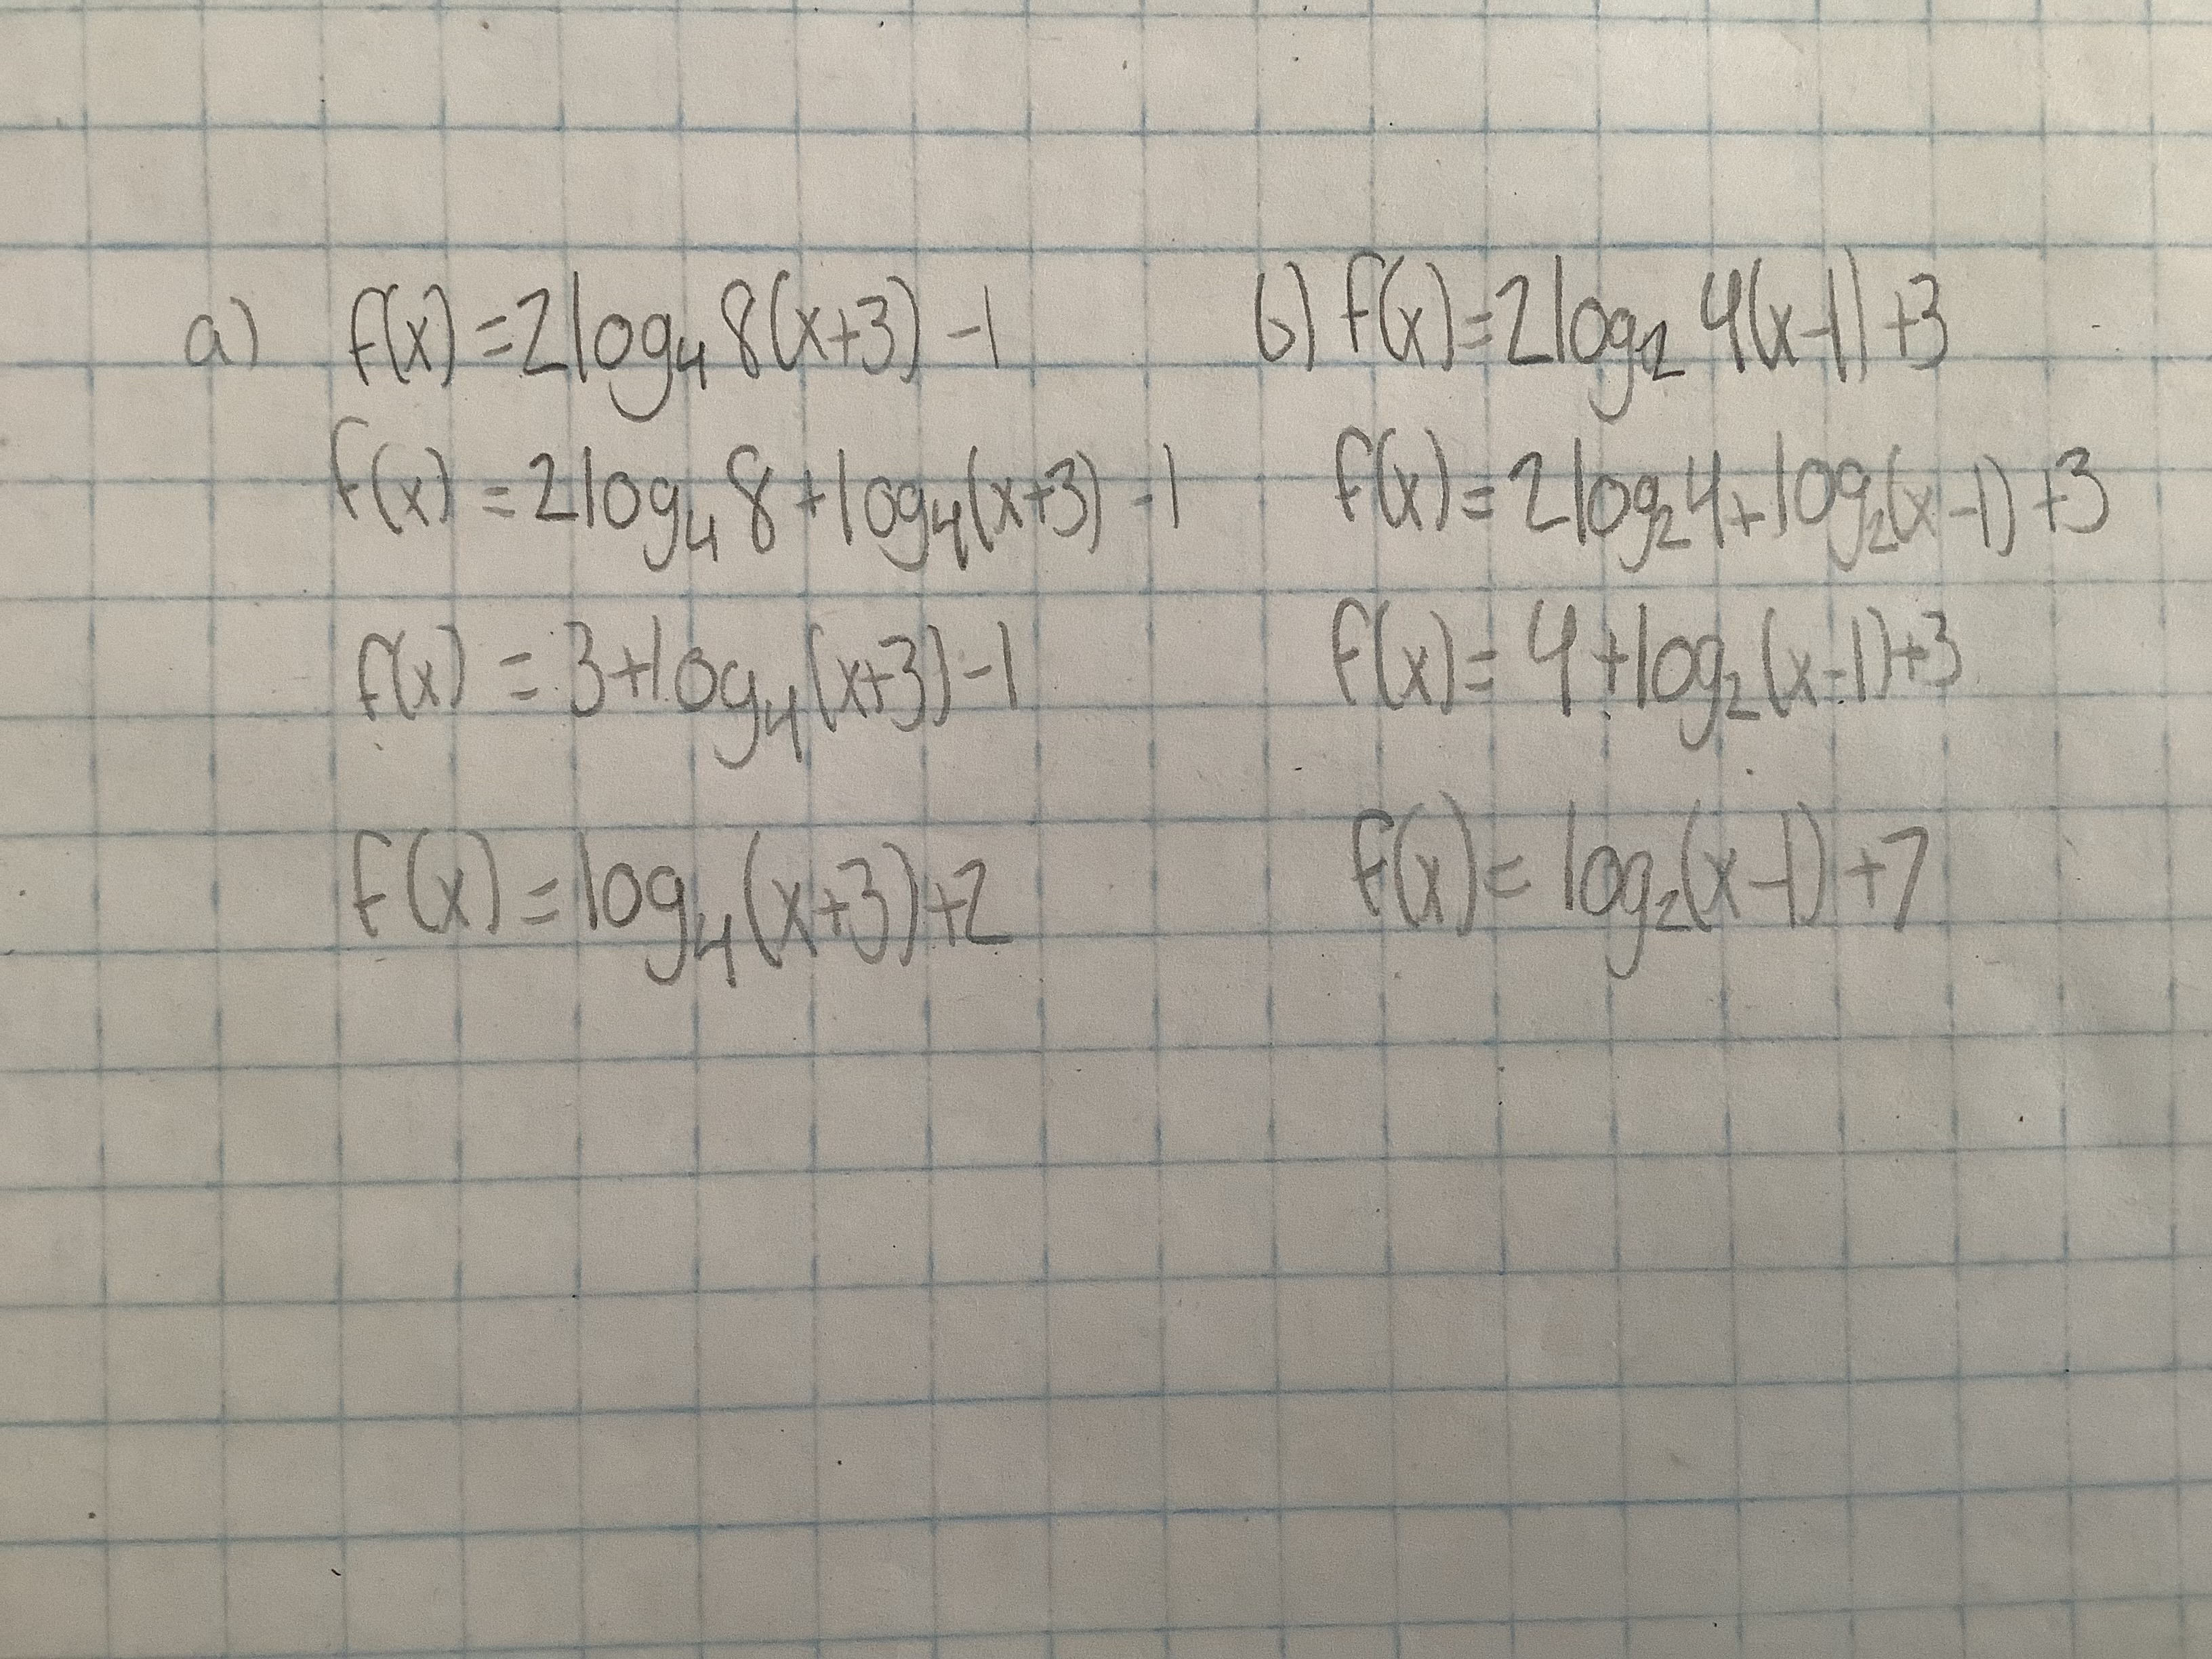 a) f(x) = 2log₄ 8(x+3) -1
f(x) = 2log₄ 8 + log₄(x+3) -1
f(x) = 3 + log₄(x+3) -1
f(x) = log₄(x+3) +2
b) f(x) = 2log₂ 4(x-1) +3
f(x) = 2log₂ 4 + log₂(x-1) +3
f(x) = 4 + log₂(x-1) +3
f(x) = log₂(x-1) +7